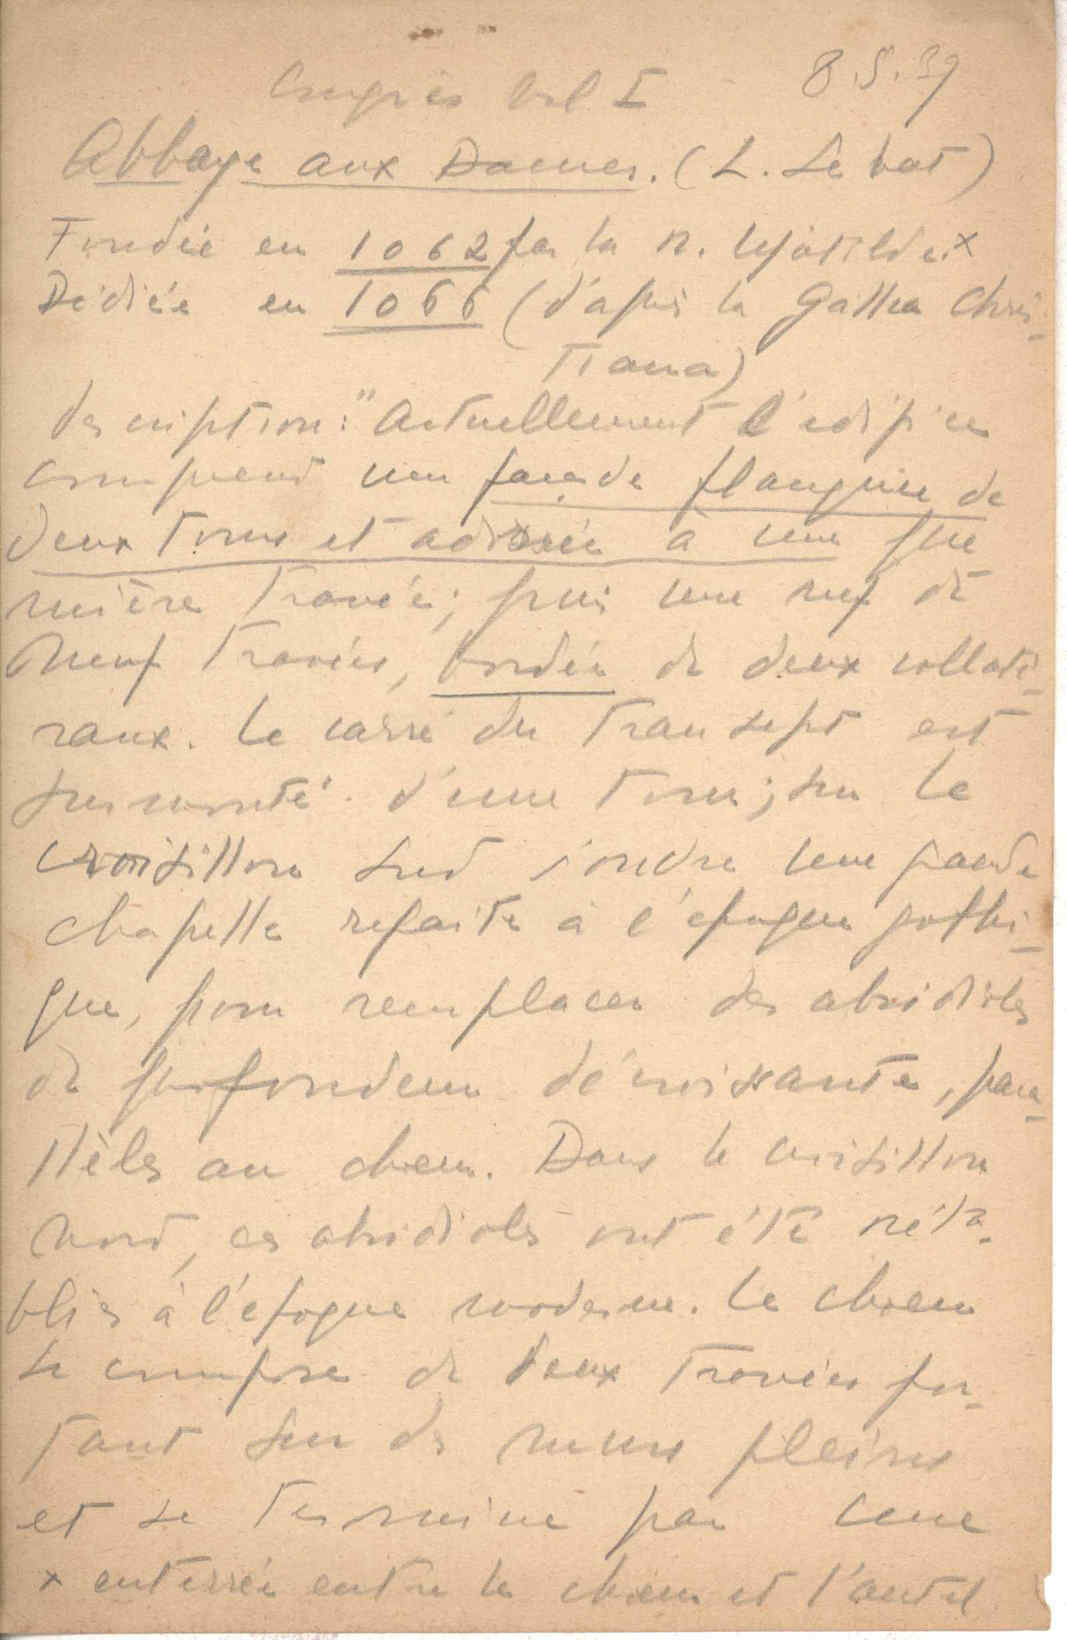 Congrès Vol I 8.5.39
Abbaye aux Dames. (L. Se hot)
Fondée en 1062 par la R. Mathilde x
Dédiée en 1066 (d'après la Gallia Chris-
tiana)
description: "Actuellement l'édifice
comprend une façade flanquée de
deux tours et adossée à une pre
mière travée; puis une nef de
neuf travées, bordée de deux collaté-
raux. Le carré du transept est
surmonté d'une tour; sur le
croisillon sud s'ouvre une grande
chapelle refaite à l'époque gothi-
que, pour remplacer des absidioles
de profondeur décroissante, para-
llèles au chœur. Dans le croisillon
nord, ces absidioles ont été réta-
blies à l'époque moderne. Le chœur
se compose de deux travées por-
tant sur des murs pleins
et se termine par une
x enterrée entre le chœur et l'autel